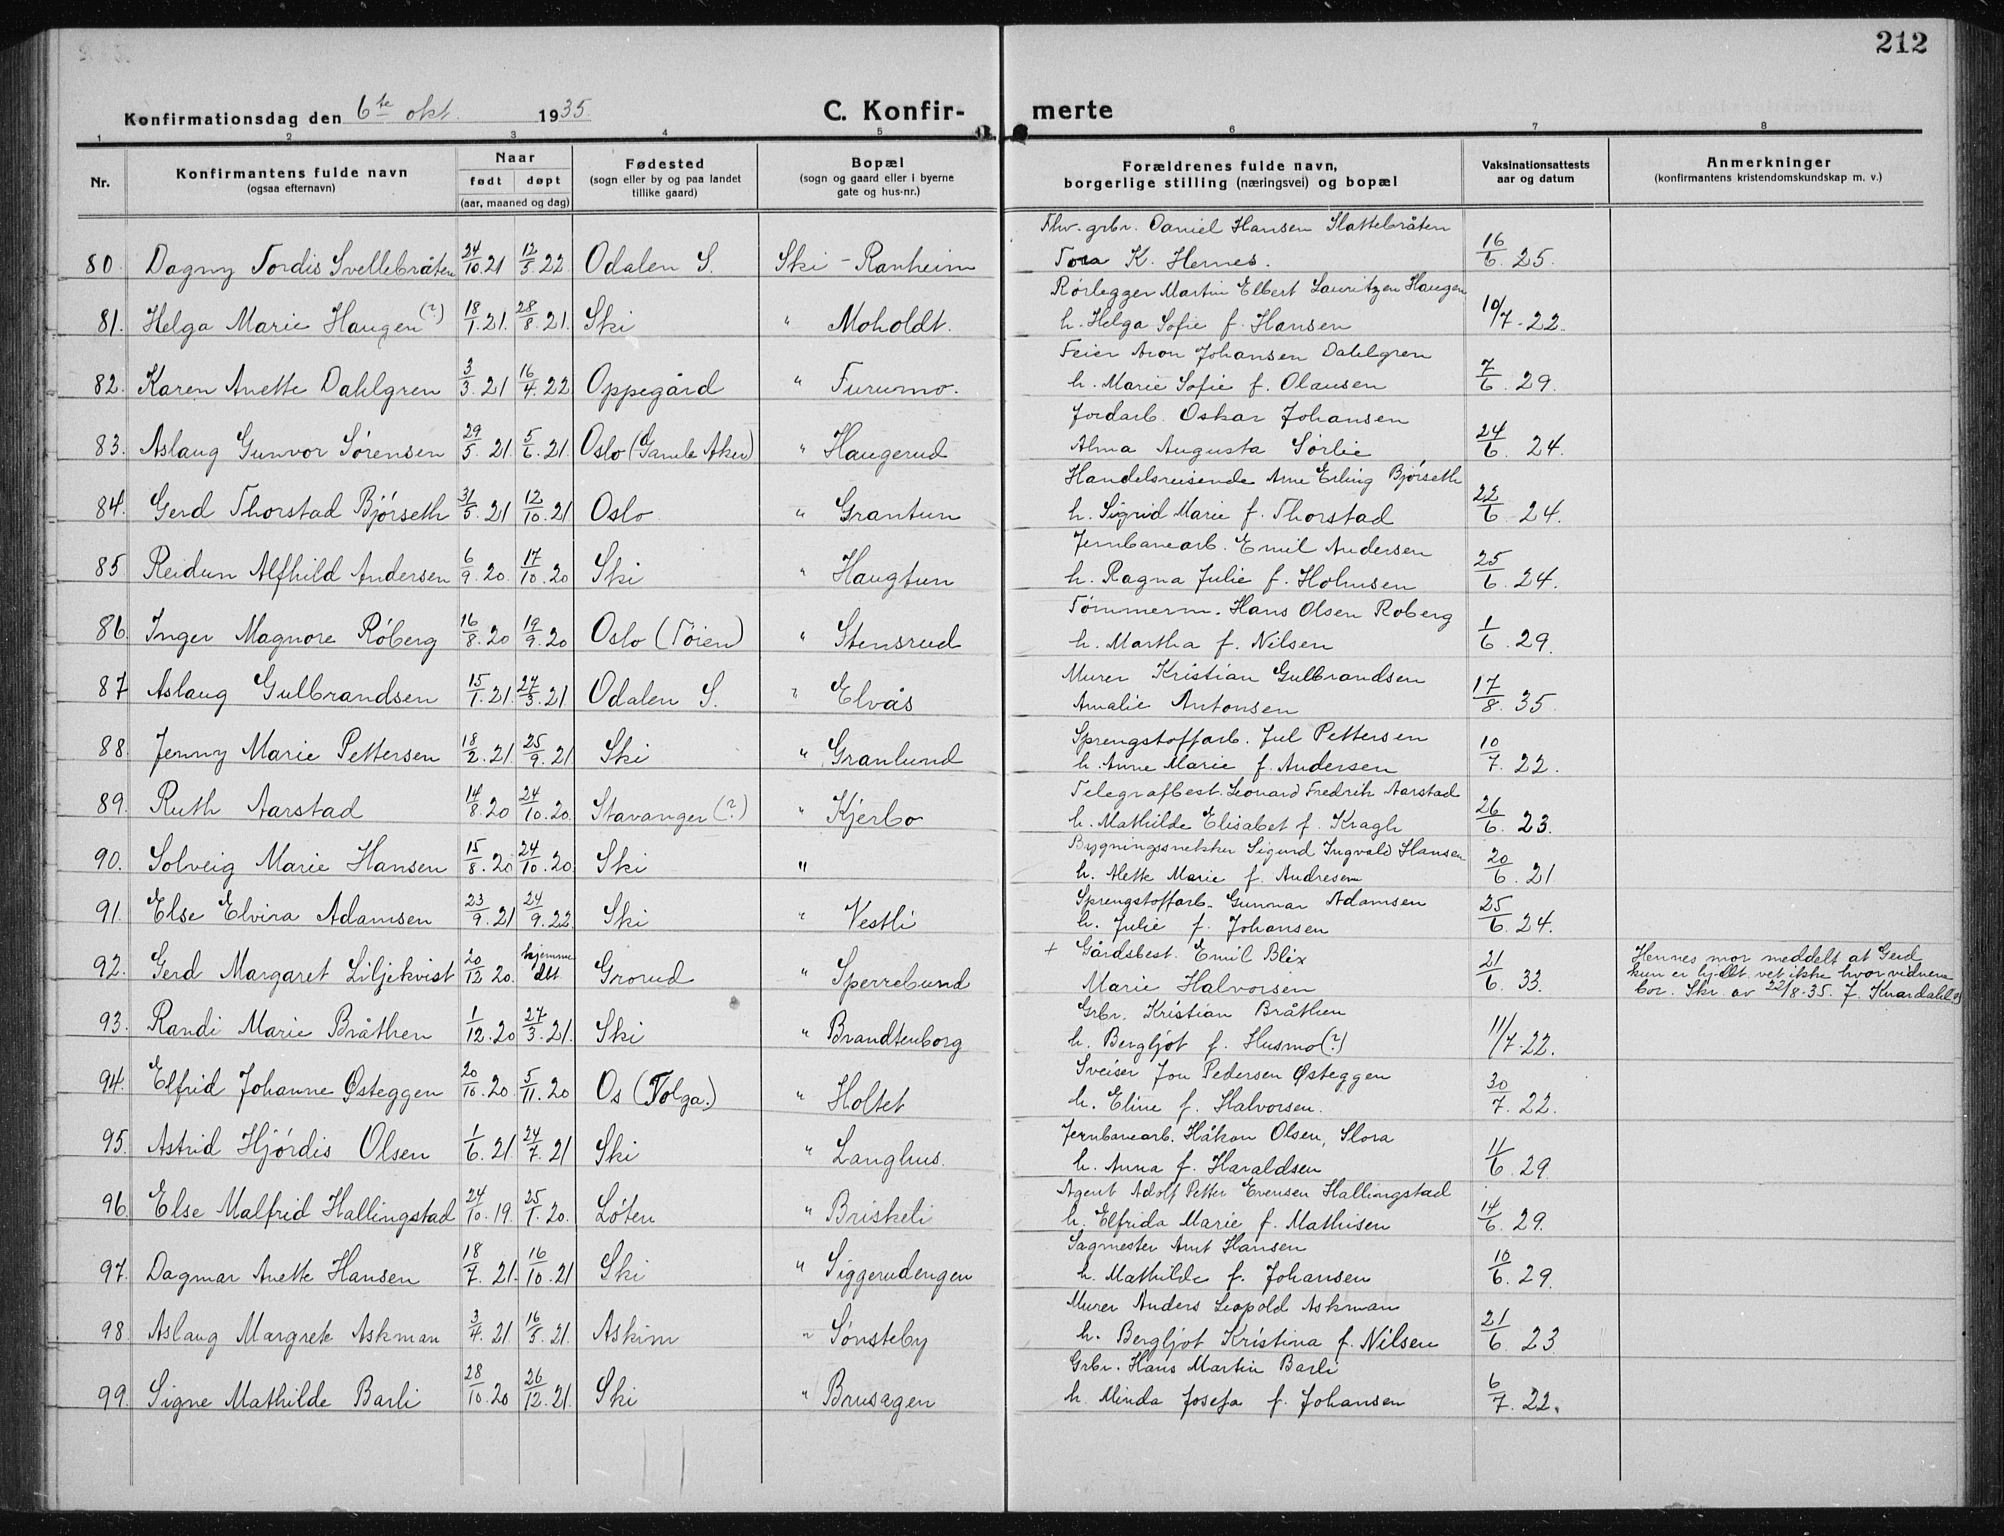 212
Konfirmationsdag den 6te okt. 1935.
C. Konfir-merte
1 2 3 4 5 6 7 8
Nr. Konfirmantens fulde navn (ogsaa efternavn) Naar født døpt (aar, maaned og dag) Fødested (sogn eller by og paa landet tillike gaard) Bopæl (sogn og gaard eller i byerne gate og hus-nr.) Forældrenes fulde navn, borgerlige stilling (næringsvei) og bopæl Vaksinationsattests aar og datum Anmerkninger (konfirmantens kristendomskundskap m. v.)
80 Dagny Tordis Svellebråten 24/10.21 12/3.22 Odalen S. Ski - Ranheim Fhv. grbr. Daniel Hansen Slattebråten
Tora K. Hernes. 16/6 25.
81. Helga Marie Haugen (?) 18/1.21. 28/8.21. Ski " Moholdt. Rørlegger Martin Elbert Lauritzen Haugen
h. Helga Sofie f. Hansen 10/7.22.
82. Karen Anette Dahlgren 3/3.21 16/4.22 Oppegård " Furumo. Feier Aron Johansen Dahlgren
h. Marie Sofie f. Olausen 7/6 29.
83. Aslaug Gunvor Sørensen 29/5.21. 5/6.21. Oslo (Gamle Aker) " Haugerud Jordarb. Oskar Johansen
Alma Augusta Sørlie 24/6 24.
84. Gerd Thorstad Bjørseth 31/5.21 12/10.21 Oslo " Grantun Handelsreisende Arne Erling Bjørseth
h. Sigrid Marie f. Thorstad 22/6 24.
85 Reidun Alfhild Andersen 6/9.20. 17/10.20 Ski " Haugtun Jernbanearb. Emil Andersen
h. Ragna Julie f. Holmsen 25/6 24.
86. Inger Magnore Røberg 16/8.20 19/9.20 Oslo (Tøien) " Stensrud Tømmerm. Hans Olsen Roberg
h. Martha f. Nilsen 1/6 29.
87 Aslaug Gulbrandsen 15/1.21. 27/3.21 Odalen S. " Elvås Murer Kristian Gulbrandsen
Amalie Antonsen 17/8. 35.
88. Jenny Marie Pettersen 18/2.21 25/9.21 Ski " Granlund Sprengstoffarb. Jul Pettersen
h. Anne Marie f. Andersen 10/7. 22.
89. Ruth Aarstad 14/8.20 24/10.20. Stavanger (?) " Kjerbo Telegrafbest. Leonard Fredrik Aarstad
h. Mathilde Elisabet f. Kragh 26/6. 23.
90. Solveig Marie Hansen 15/8.20 24/10.20. Ski " Bygningssnekker Sigurd Ingvald Hansen
h. Alette Marie f. Andresen 20/6. 21
91. Else Elvira Adamsen 23/9.21 24/9.22 Ski " Vestli Sprengstoffarb. Gunnar Adamsen
h. Julie f. Johansen 25/6. 24.
92. Gerd Margaret Liljekvist 20/12 20. hjemmedbt Grorud " Sperrebund + Gårdsbest. Emil Blix
Marie Halvorsen 21/6. 33. Hennes mor meddelt at Gerd
kun er hj.dbt. vet ikke hvor vidnene
bor. Skr. av 22/8.35.
93. Randi Marie Bråthen 1/12.20 27/3.21. Ski " Brandtenborg Grbr. Kristian Bråthen
h. Bergljot f. Husmo (?) 11/7.22.
94. Elfrid Johanne Østeggen 20/10.20 5/11.20 Os (Tolga.) " Holtet Sveiser Jon Pedersen Østeggen
h. Eline f. Halvorsen. 30/7. 22.
95. Astrid Hjørdis Olsen 1/6.21. 24/7.21 Ski " Langhus. Jernbanearb. Håkon Olsen, Slora
h. Anna f. Haraldsen 11/6. 29.
96. Else Malfrid Hallingstad 24/10.19. 25/1.20. Løten " Briskeli Agent Adolf Petter Evensen Hallingstad
h. Elfrida Marie f. Mathisen 14/6. 29.
97. Dagmar Anette Hansen 18/7.21. 16/10.21 Ski " Siggerudengen Sagmester Amt Hansen
h. Mathilde f. Johansen 10/6. 29.
98. Aslaug Margrete Askman 3/4.21 16/5.21. Askim " Sønsteby Murer Anders Leopold Askman
h. Bergljot Kristina f. Nilsen 21/6 23
99. Signe Mathilde Barli 28/10.20 26/12.21. Ski " Brusagen Grbr. Hans Martin Barli
h. Minda Josefa f. Johansen 6/7. 22.